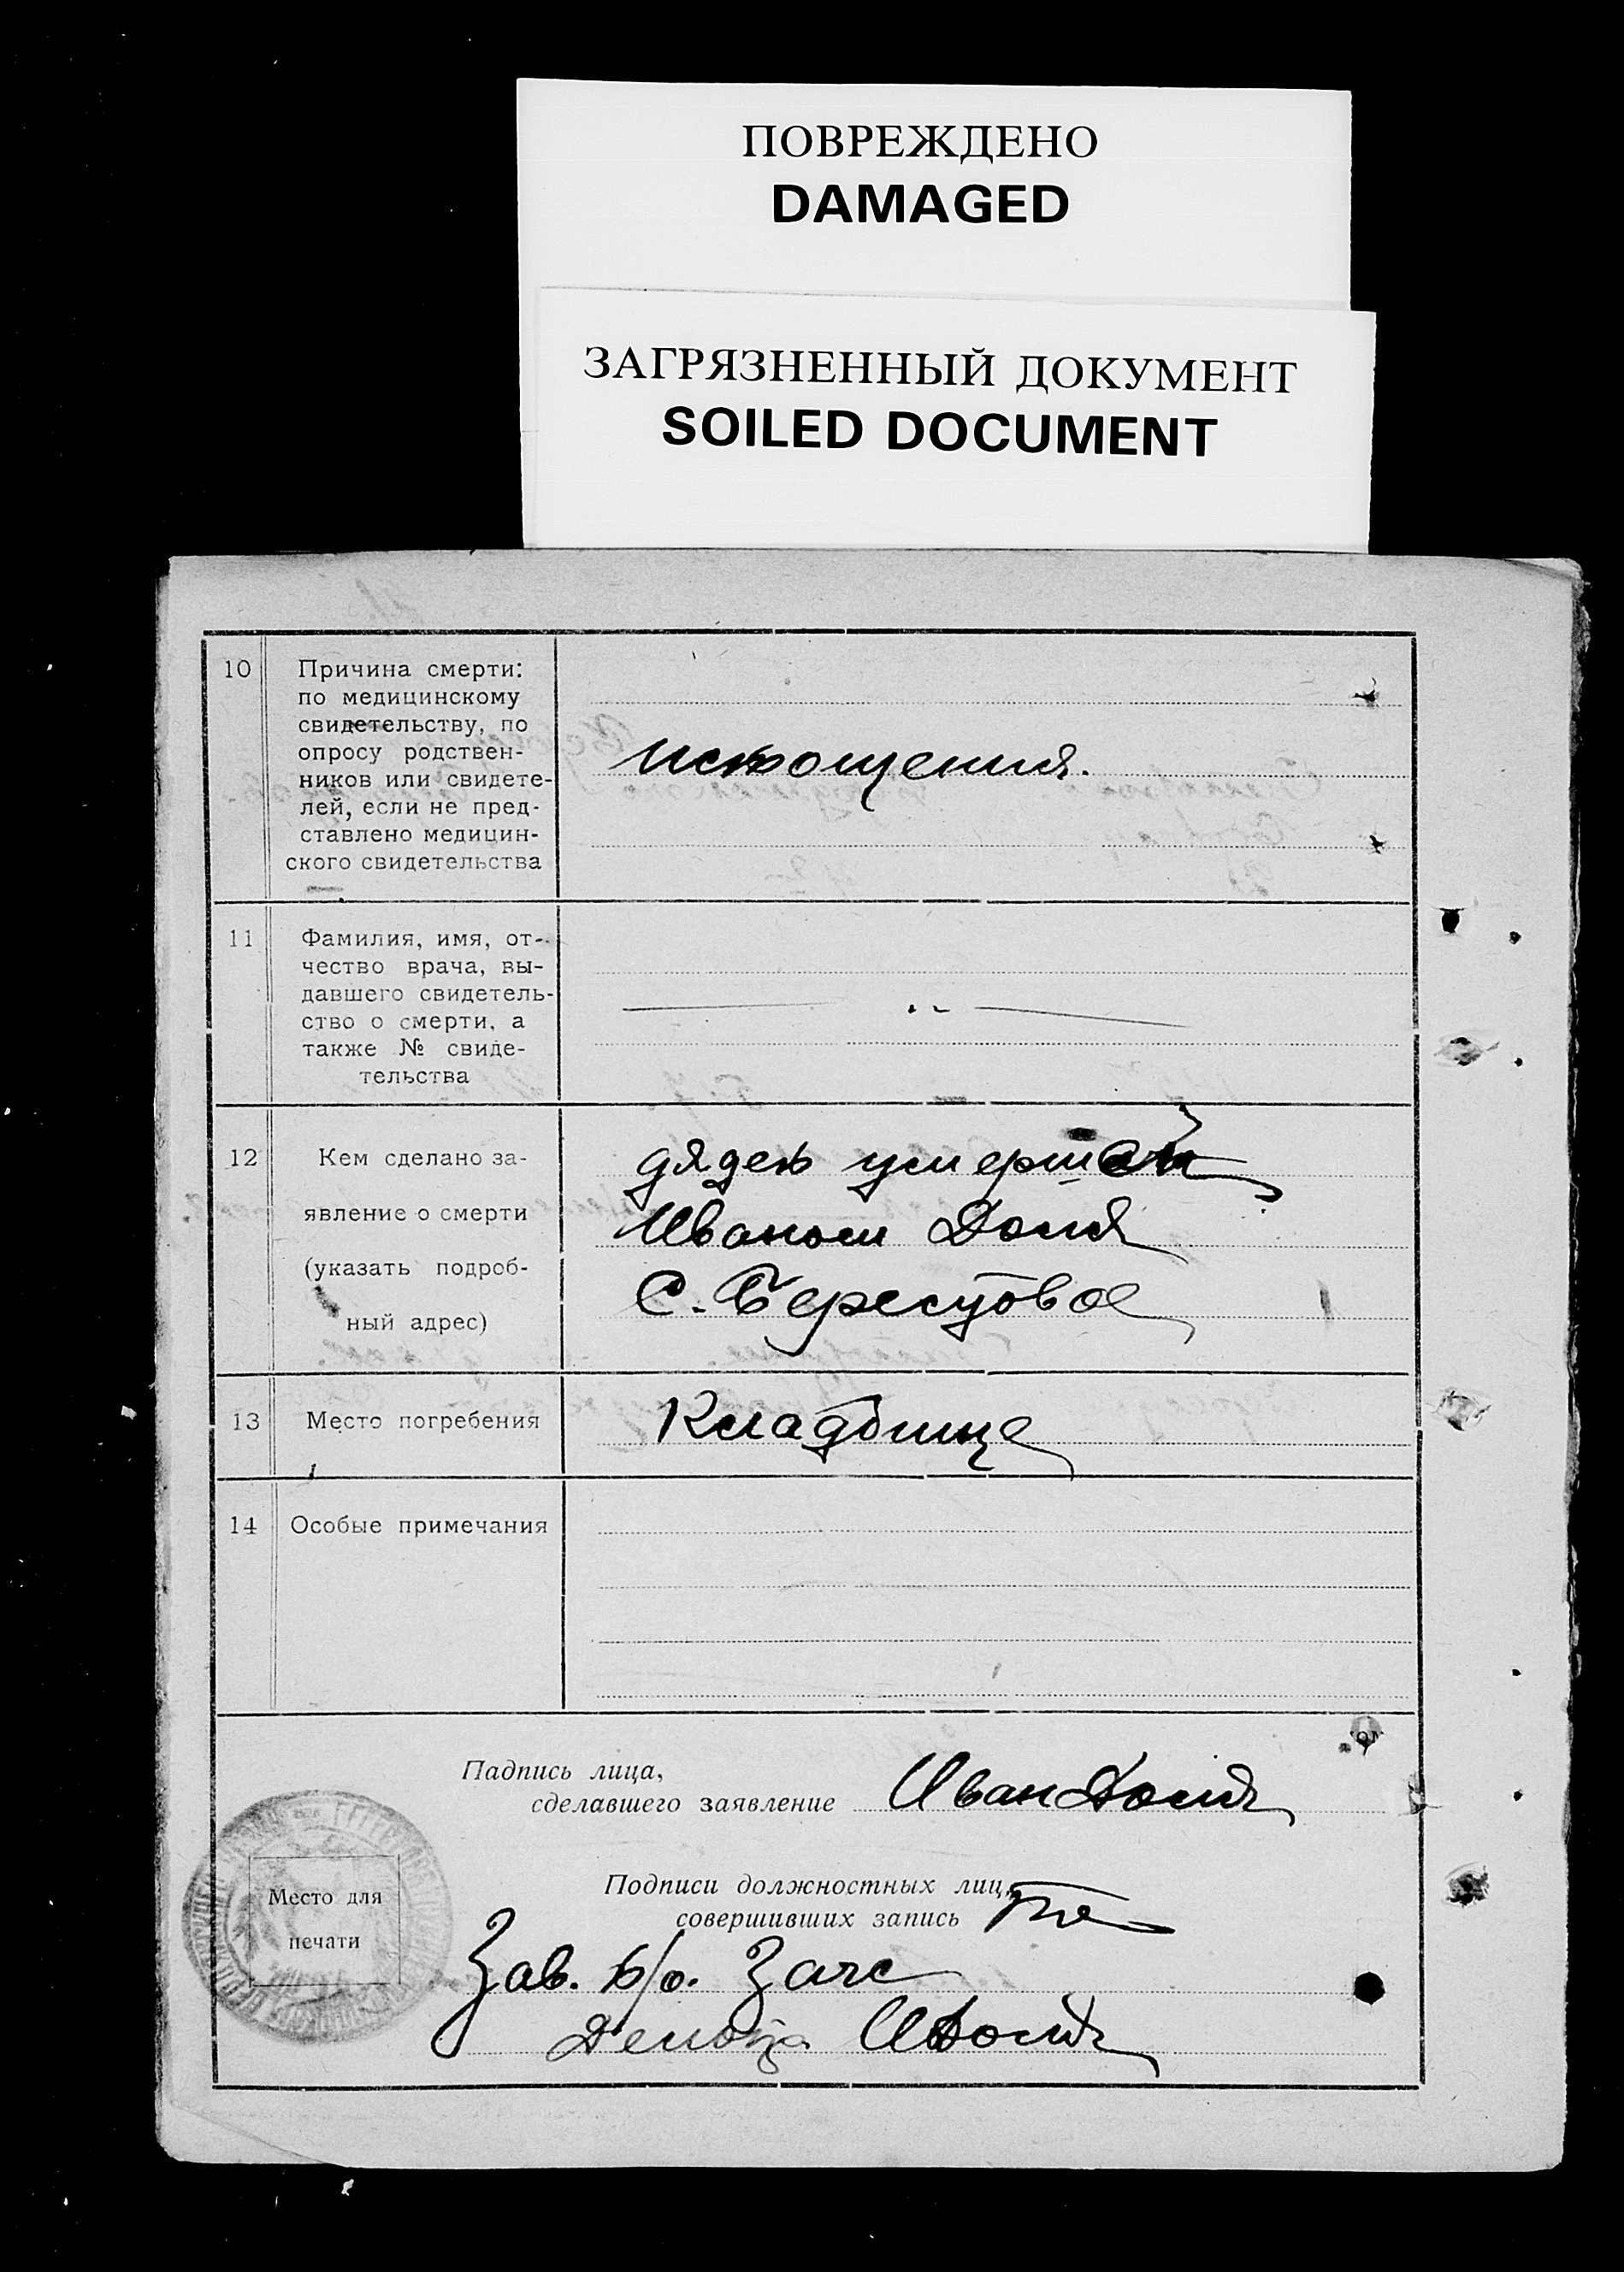 ПОВРЕЖДЕНО
DAMAGED
ЗАГРЯЗНЕННЫЙ ДОКУМЕНТ
SOILED DOCUMENT
10
Причина смерти:
по медицинскому
свидетельству, по
опросу родствен-
ников или свидете-
лей, если не пред-
ставлено медицин-
ского свидетельства
истощения.
11
Фамилия, имя, от-
чество врача, вы-
давшего свидетель-
ство о смерти, а
также № свиде-
тельства
12
Кем сделано за-
явление о смерти
(указать подроб-
ный адрес)
дядей умершей
Иваном Доля
С. Берестовое
13
Место погребения
Кладбище
14
Особые примечания
Падпись лица,
сделавшего заявление
Иван Доля
Подписи должностных лиц,
совершивших запись
Место для
печати
Зав. б/о. Загс